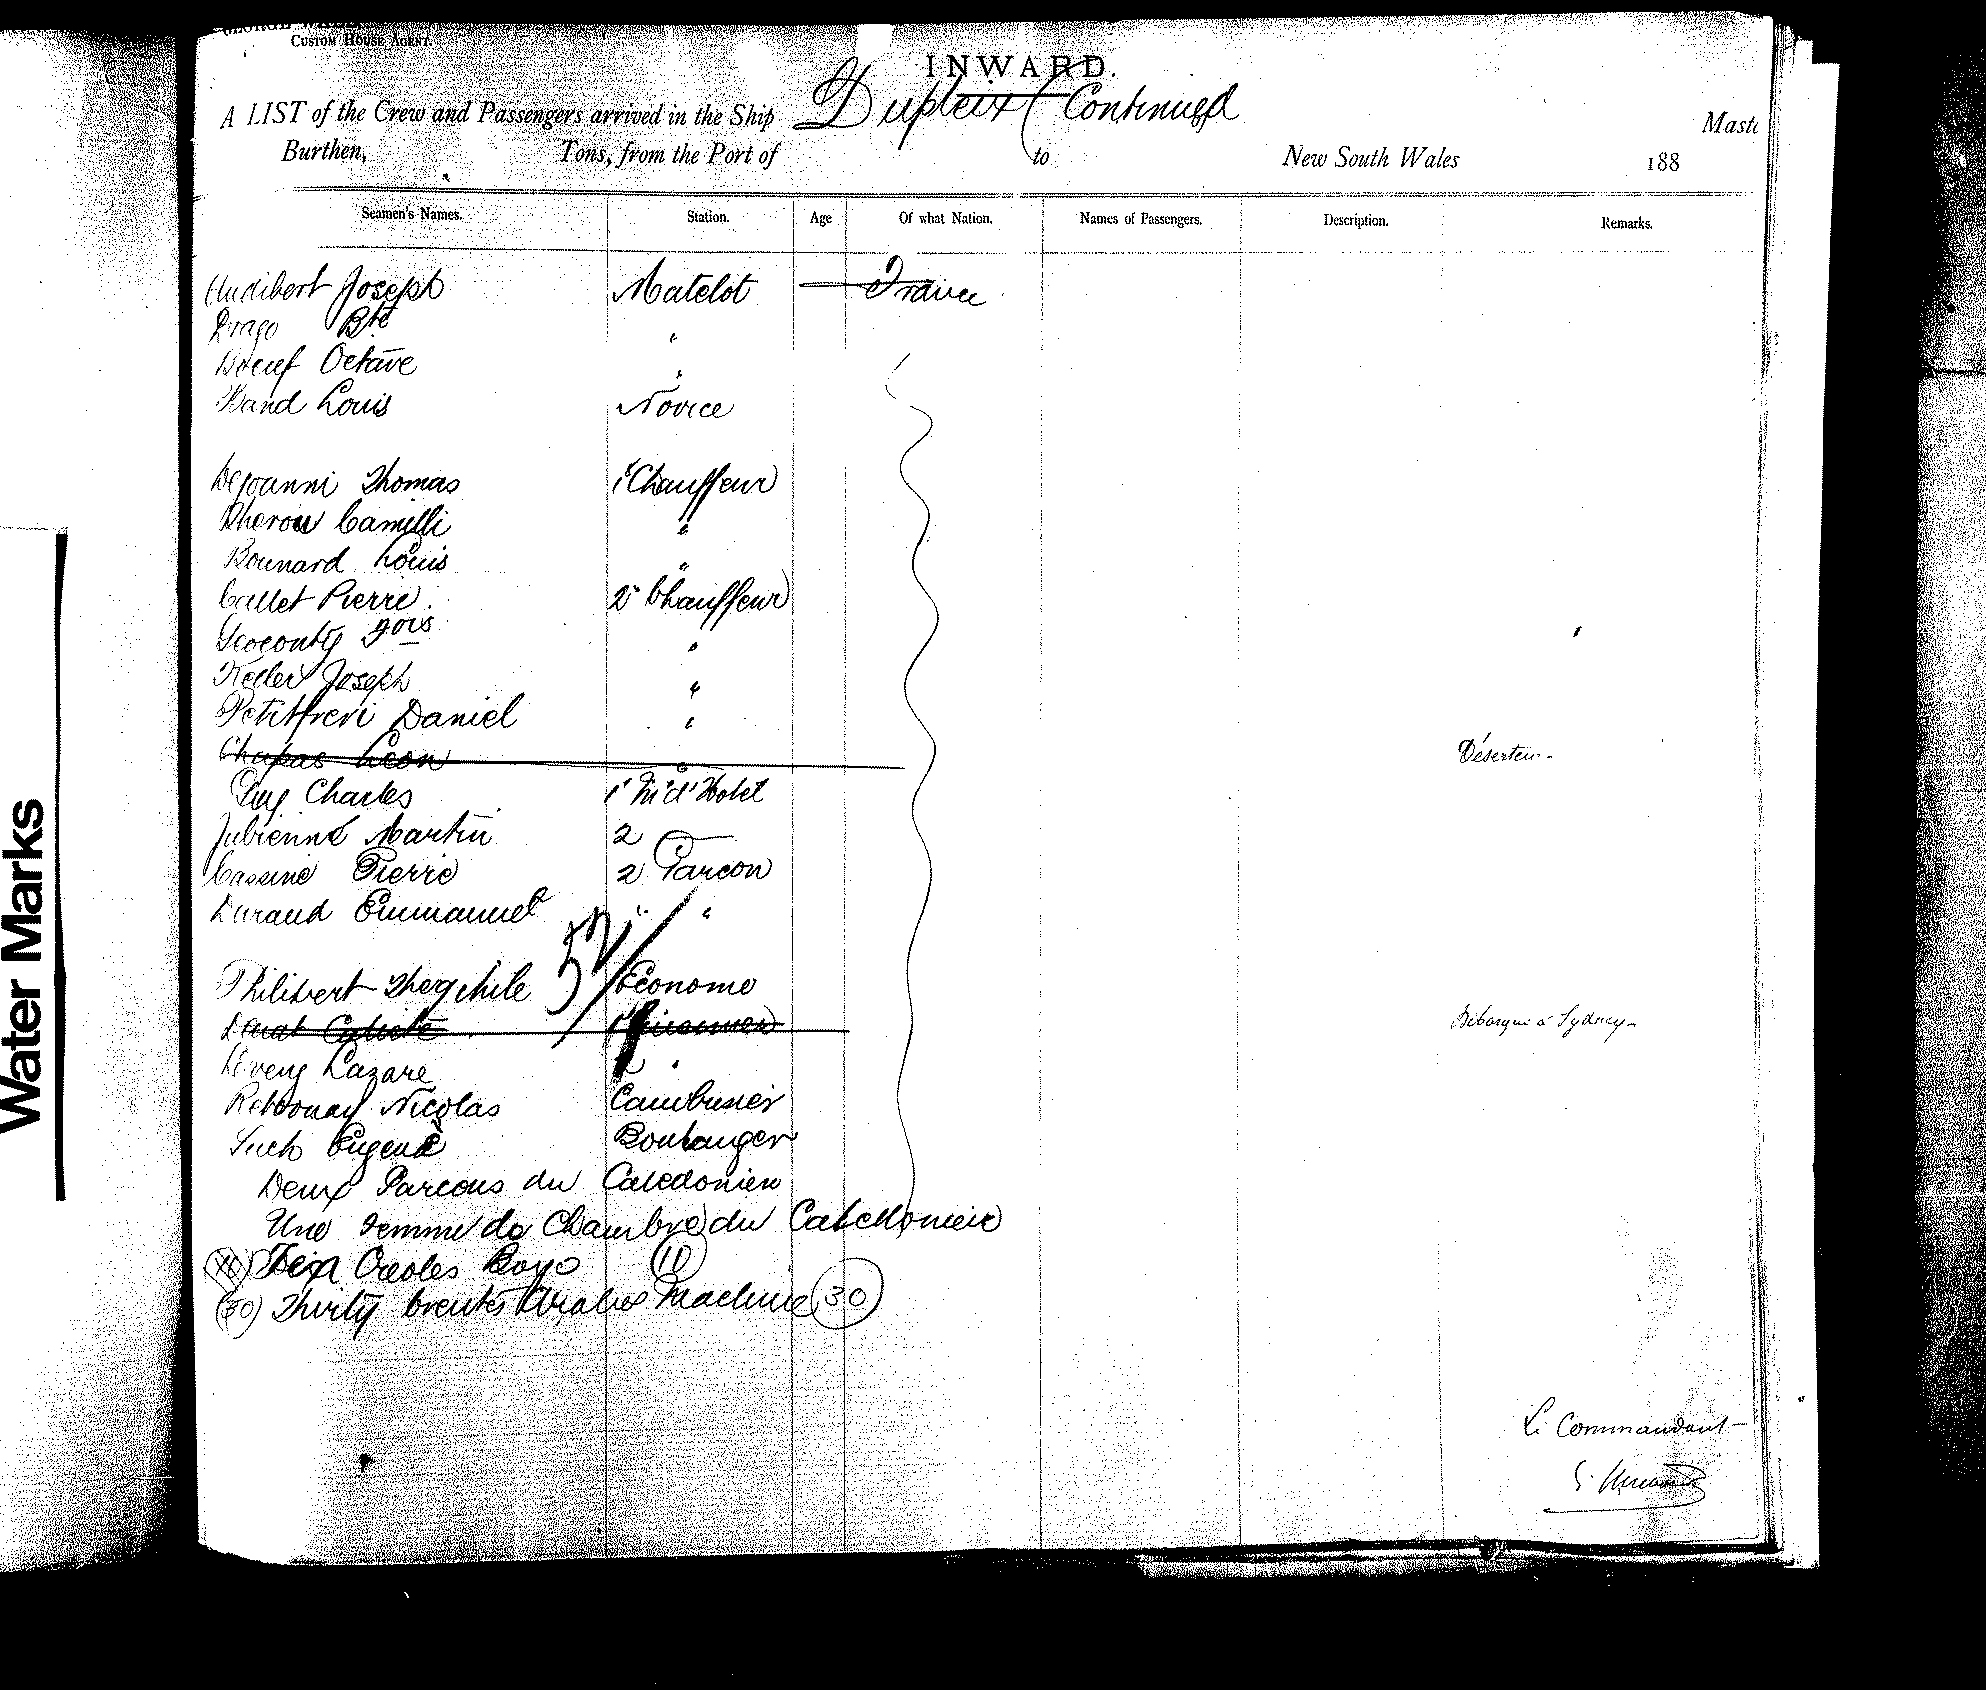 CUSTOM HOUSE AGENT.
INWARD.
A LIST of the Crew and Passengers arrived in the Ship Dupleix (Continued
Burthen, Tons, from the Port of to New South Wales 188
Seamen's Names. Station. Age Of what Nation. Names of Passengers. Description. Remarks.
Audibert Joseph Matelot France
Drago Bte "
Boeuf Octave "
Band Louis Novice
Degoanni Thomas 1 Chauffeur
Camilli "
Bonnard Louis "
Callet Pierre 2 Chauffeur
"
Keller Joseph "
Petitfrere Daniel "
Chapas Leon " Déserteur
Puy Charles 1 M d'Hotel
Jubienne Martin 2
Cassine Pierre 2 Garcon
Durand Emmanuel " "
52
Philibert Econome
Débarqué à Sydney
Lazare 2 "
Nicolas Cambusier
Such Eugene Boulanger
Deux Garcons du Caledonien
Une Femme de Chambre du Caledonien
(10) Dix Creoles Boys (10)
(30) Thirty Arabes Machine (30)
Le Commandant
Water Marks